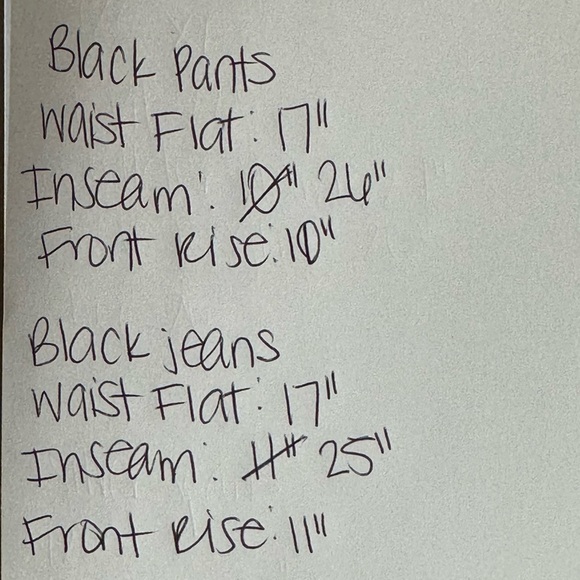 Black Pants
Waist Flat: 17"
Inseam: 10" 26"
Front Rise: 10"
Black jeans
Waist Flat: 17"
Inseam: 11" 25"
Front Rise: 11"